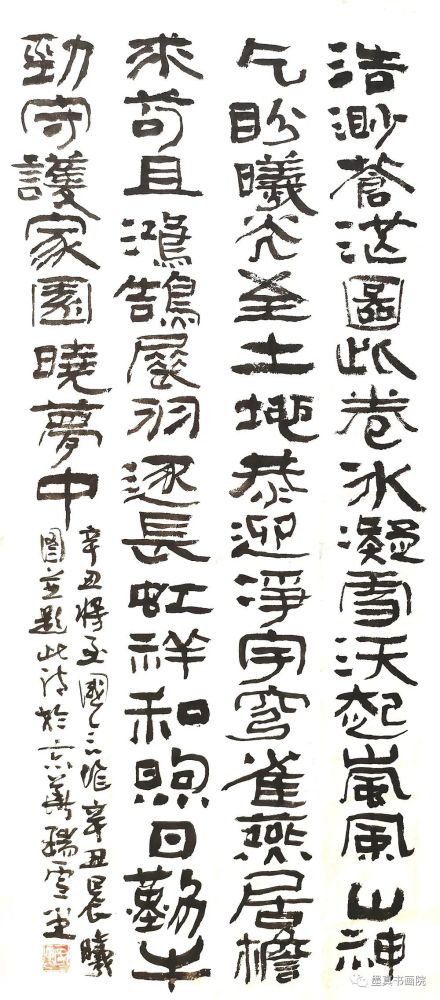 浩渺蒼茫圖此卷冰凝雪沃起嵐風山神
乞盼曦光至土地恭迎淨宇穹雀燕居檐
求苟且鴻鵠展羽逐長虹祥和煦日勤牛
勁守護家園曉夢中
辛丑將至國作辛丑晨曦
圖並題此詩於京華雪堂
墨真书画院